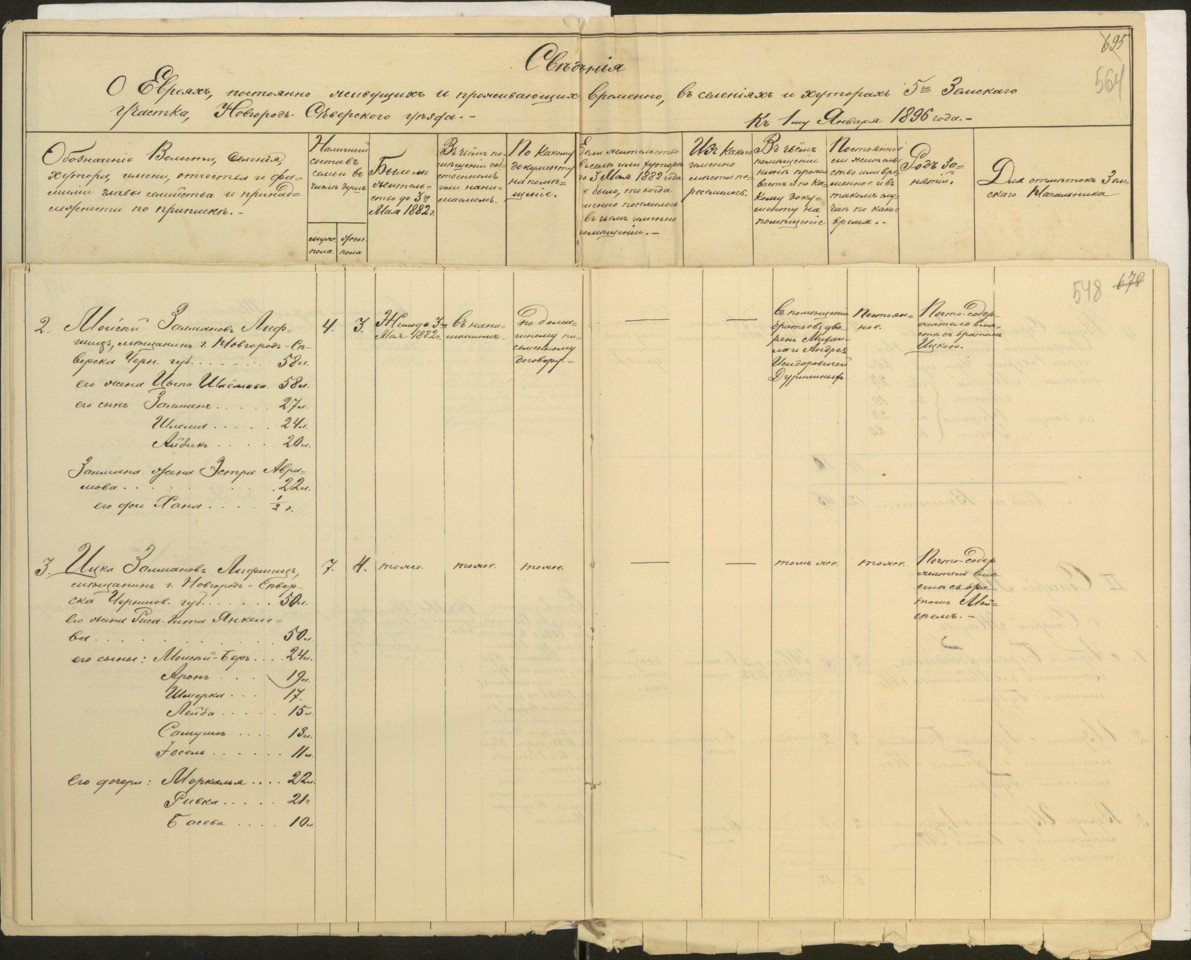 695
564
Свѣдѣнія
О Евреяхъ, постоянно живущихъ и проживающихъ временно, въ селеніяхъ и хуторахъ 5го Земскаго
Участка, Новгородъ-Сѣверского уѣзда.-
Къ 1му Января 1896 года.-
Обозначеніе Волости, селенія,
хутора, имени, отчества и фа-
миліи главы семейства и принад-
лежности по припискѣ.-
Наличный
составъ
семьи
муж.
пола
жен.
пола
Было ли
житель-
ство до 3го
Мая 1882 г.
Въ чьемъ по-
мѣщеніи соб-
ственномъ
или нани-
маемомъ.
По какому
документу
на помѣ-
щеніе.
Если жительство
въ селѣ или хуторѣ
до 3 Мая 1882 года
не было, то когда
именно поселилось
въ чьемъ именно
помѣщеніи.-
Изъ какого
именно
мѣста пе-
реселились.
Въ чьемъ
помѣщеніи
нынѣ прожи-
ваетъ и по ка-
кому доку-
менту на
помѣщеніе
Постоянное
ли жительс-
тво или вре-
менно и въ
такомъ слу-
чаѣ по какое
время.-
Родъ за-
нятій.
Для отмѣтокъ Зем-
скаго Начальника.
548 678
2. Мойсей Залмановъ Лиф-
шицъ, мѣщанинъ г. Новгородъ-Сѣ-
верска Черн. губ. . . . . . 58 л.
его жена Цыпа Шлёмова 58 л.
его сынъ Залманъ . . . . . 27 л.
Шлема . . . . . . 24 л.
Айзикъ . . . . . . 20 л.
Залмана жена Эстра Авра-
мова . . . . . . . . 22 л.
его дочь Хана . . . . 1/2 г.
4. 3.
Жили до 3го
Мая 1882 г.
въ нани-
маемомъ.
по домаш-
нему пи-
сьменному
договору.-
— —
въ помѣщеніи
братьевъ дво-
рянъ Михаи-
ла и Андрея
Исидоровичей
Дуриныхъ
Постоян-
ное.
Почто-содер-
жатель вмѣ-
стѣ съ братомъ
Ицкою.
3. Ицка Залмановъ Лифшицъ,
мѣщанинъ г. Новгородъ-Сѣвер-
ска Чернигов. губ. . . . . . 50 л.
Его жена Янкело-
ва . . . . . . . . . 50 л.
его сыны: Мойсей-Беръ . . . 24 л.
Аронъ . . . . 19 л.
Шмерка . . . 17.
Лейба . . . . . 15 л.
Самуилъ . . . . 13 л.
Іосель . . . . . . 11 л.
его дочери: Моркалья . . . . 22 л.
Ривка . . . . . 21 г.
Басева . . . . 10 л.
7. 4. тоже. тоже. тоже. — — тоже. тоже.
Почто-содер-
жатель вмѣ-
стѣ съ бра-
томъ Мой-
сеемъ.-